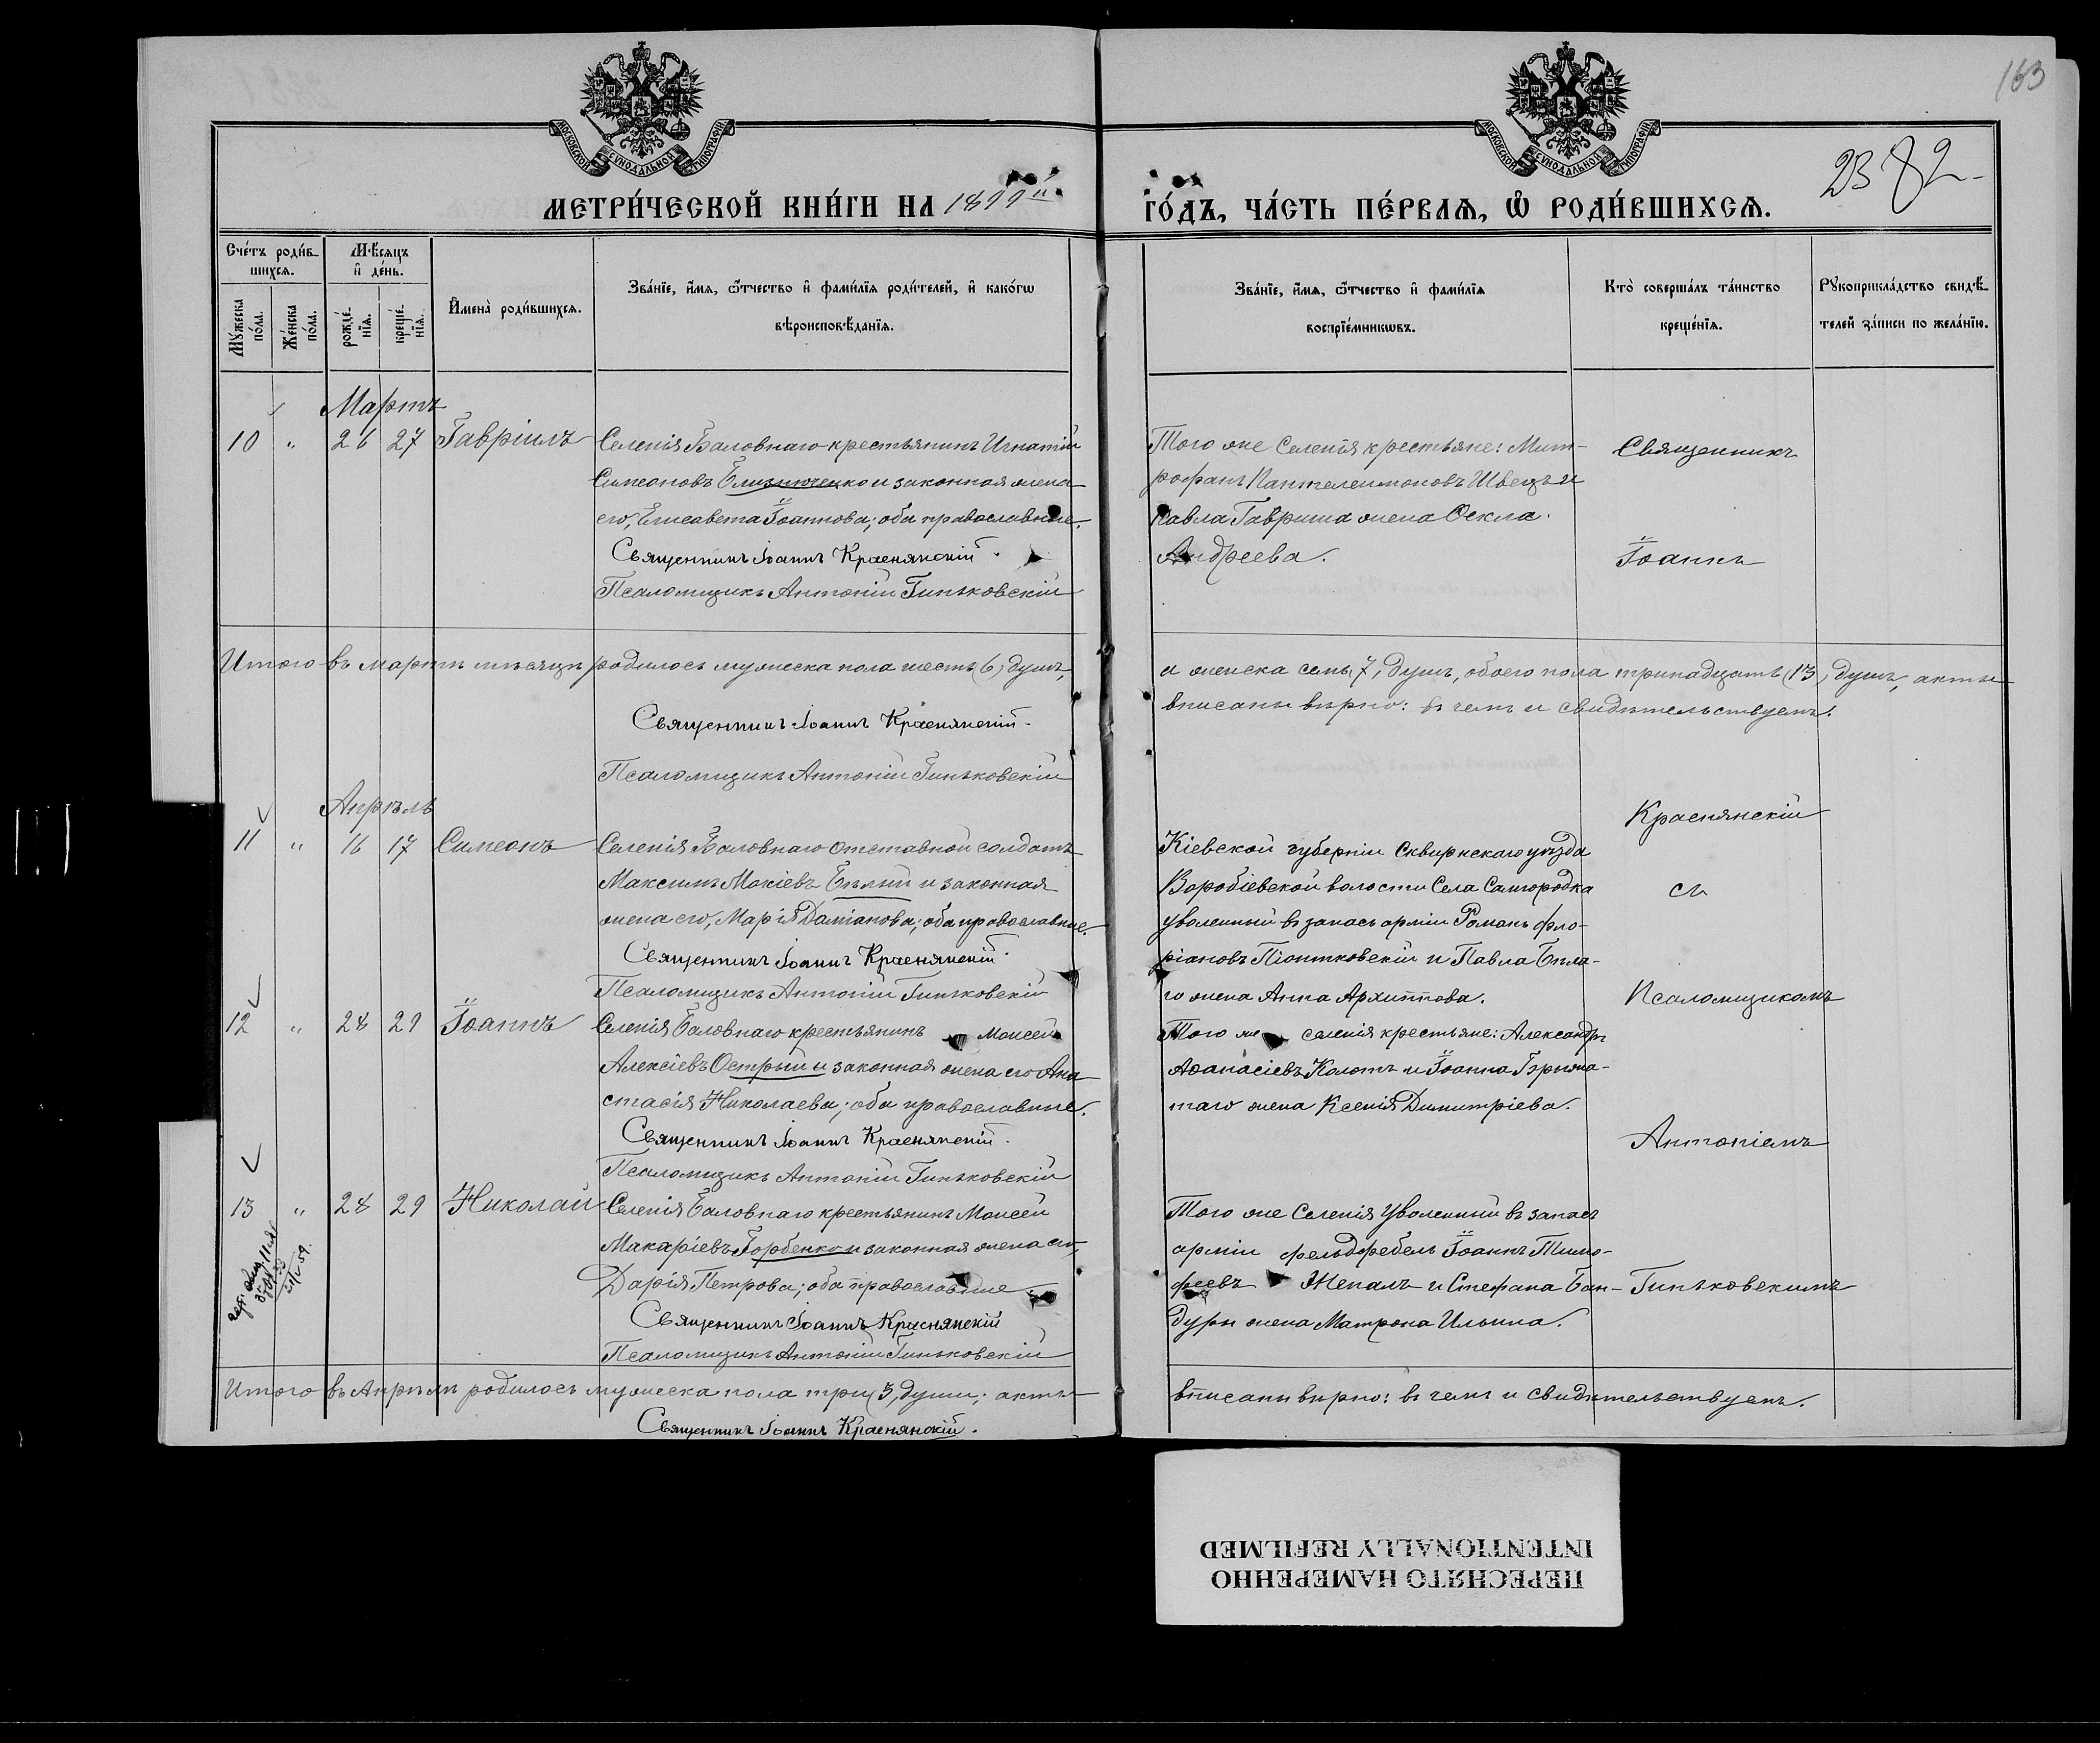 163
2382
МОСКОВСКОЙ СѴНОДАЛЬНОЙ ТИПОГРАФІИ
МОСКОВСКОЙ СѴНОДАЛЬНОЙ ТИПОГРАФІИ
МЕТРИ́ЧЕСКОЙ КНИ́ГИ НА 1899й
ГО́ДЪ, ЧА́СТЬ ПЕ́РВАѦ, Ѽ РОДИ́ВШИХСѦ.
Сче́тъ роди́в-
шихсѧ.
Мѣ́сѧцъ
и҆ де́нь.
Мꙋ́жеска
по́ла.
Же́нска
по́ла.
рожде́-
нїѧ.
креще́-
нїѧ.
И҆мена̀ роди́вшихсѧ.
Зва́нїе, и҆́мѧ, ѻ҆́тчество и҆ фами́лїѧ роди́телей, и҆ како́гѡ
вѣроисповѣ́данїѧ.
Зва́нїе, и҆́мѧ, ѻ҆́тчество и҆ фами́лїѧ
воспрїе́мникѡвъ.
Кто̀ соверша́лъ та́инство
креще́нїѧ.
Рꙋкоприкла́дство свидѣ́-
телей за́писи по жела́нїю.
Мартъ
10 " 26 27 Гавріилъ
Селенія Баловнаго крестьянинъ Игнатій
Симеоновъ Близнюченко и законная жена
его, Елисавета Іоаннова; оба православные.
Священникъ Іоаннъ Краснянскій.
Псаломщикъ Антоній Гиньковскій
Того же селенія крестьяне: Мит-
рофанъ Пантелеимоновъ Швецъ и
Павла Гавриша жена Ѳекла
Андреева.
Священникъ
Іоаннъ
Итого въ мартѣ мѣсяцѣ родилось мужеска пола шесть (6) душъ,
и женска семь (7) душъ, обоего пола тринадцать (13) душъ, акты
вписаны вѣрно: въ чемъ и свидѣтельствуемъ:
Священникъ Іоаннъ Краснянскій.
Псаломщикъ Антоній Гиньковскій
Апрѣль
11 " 16 17 Симеонъ
Селенія Баловнаго отставной солдатъ
Максимъ Мокіевъ Бѣлый и законная
жена его, Марія Даміанова; оба православные.
Священникъ Іоаннъ Краснянскій.
Псаломщикъ Антоній Гиньковскій
Кіевской губерніи Сквирскаго уѣзда
Воробіевской волости Села Самгородка
уволенный въ запасъ арміи Романъ Фло-
ріановъ Піонтковскій и Павла Бѣла-
го жена Анна Архиппова.
Краснянскій
съ
Псаломщикомъ
12 " 28 29 Іоаннъ
Селенія Баловнаго крестьянинъ Моисей
Алексіевъ Острый и законная жена его Ана-
стасія Николаева; оба православные.
Священникъ Іоаннъ Краснянскій.
Псаломщикъ Антоній Гиньковскій
Того же селенія крестьяне: Александръ
Аѳанасіевъ Колотъ и Іоанна
жена Ксенія Димитріева.
Антоніемъ
13 " 28 29 Николай
Селенія Баловнаго крестьянинъ Моисей
Макаріевъ Горбенко и законная жена его,
Дарія Петрова; оба православные
Священникъ Іоаннъ Краснянскій
Псаломщикъ Антоній Гиньковскій
Того же Селенія уволенный въ запасъ
арміи фельдфебель Іоаннъ Тимо-
феевъ Жепалъ и Стефана Бан-
дуры жена Матрона Ильина.
Гиньковскимъ
Итого въ Апрѣлѣ родилось мужеска пола три (3) души; акты
вписаны вѣрно: въ чемъ и свидѣтельствуемъ.
Священникъ Іоаннъ Краснянскій.
ПЕРЕСНЯТО НАМЕРЕННО
INTENTIONALLY REFILMED